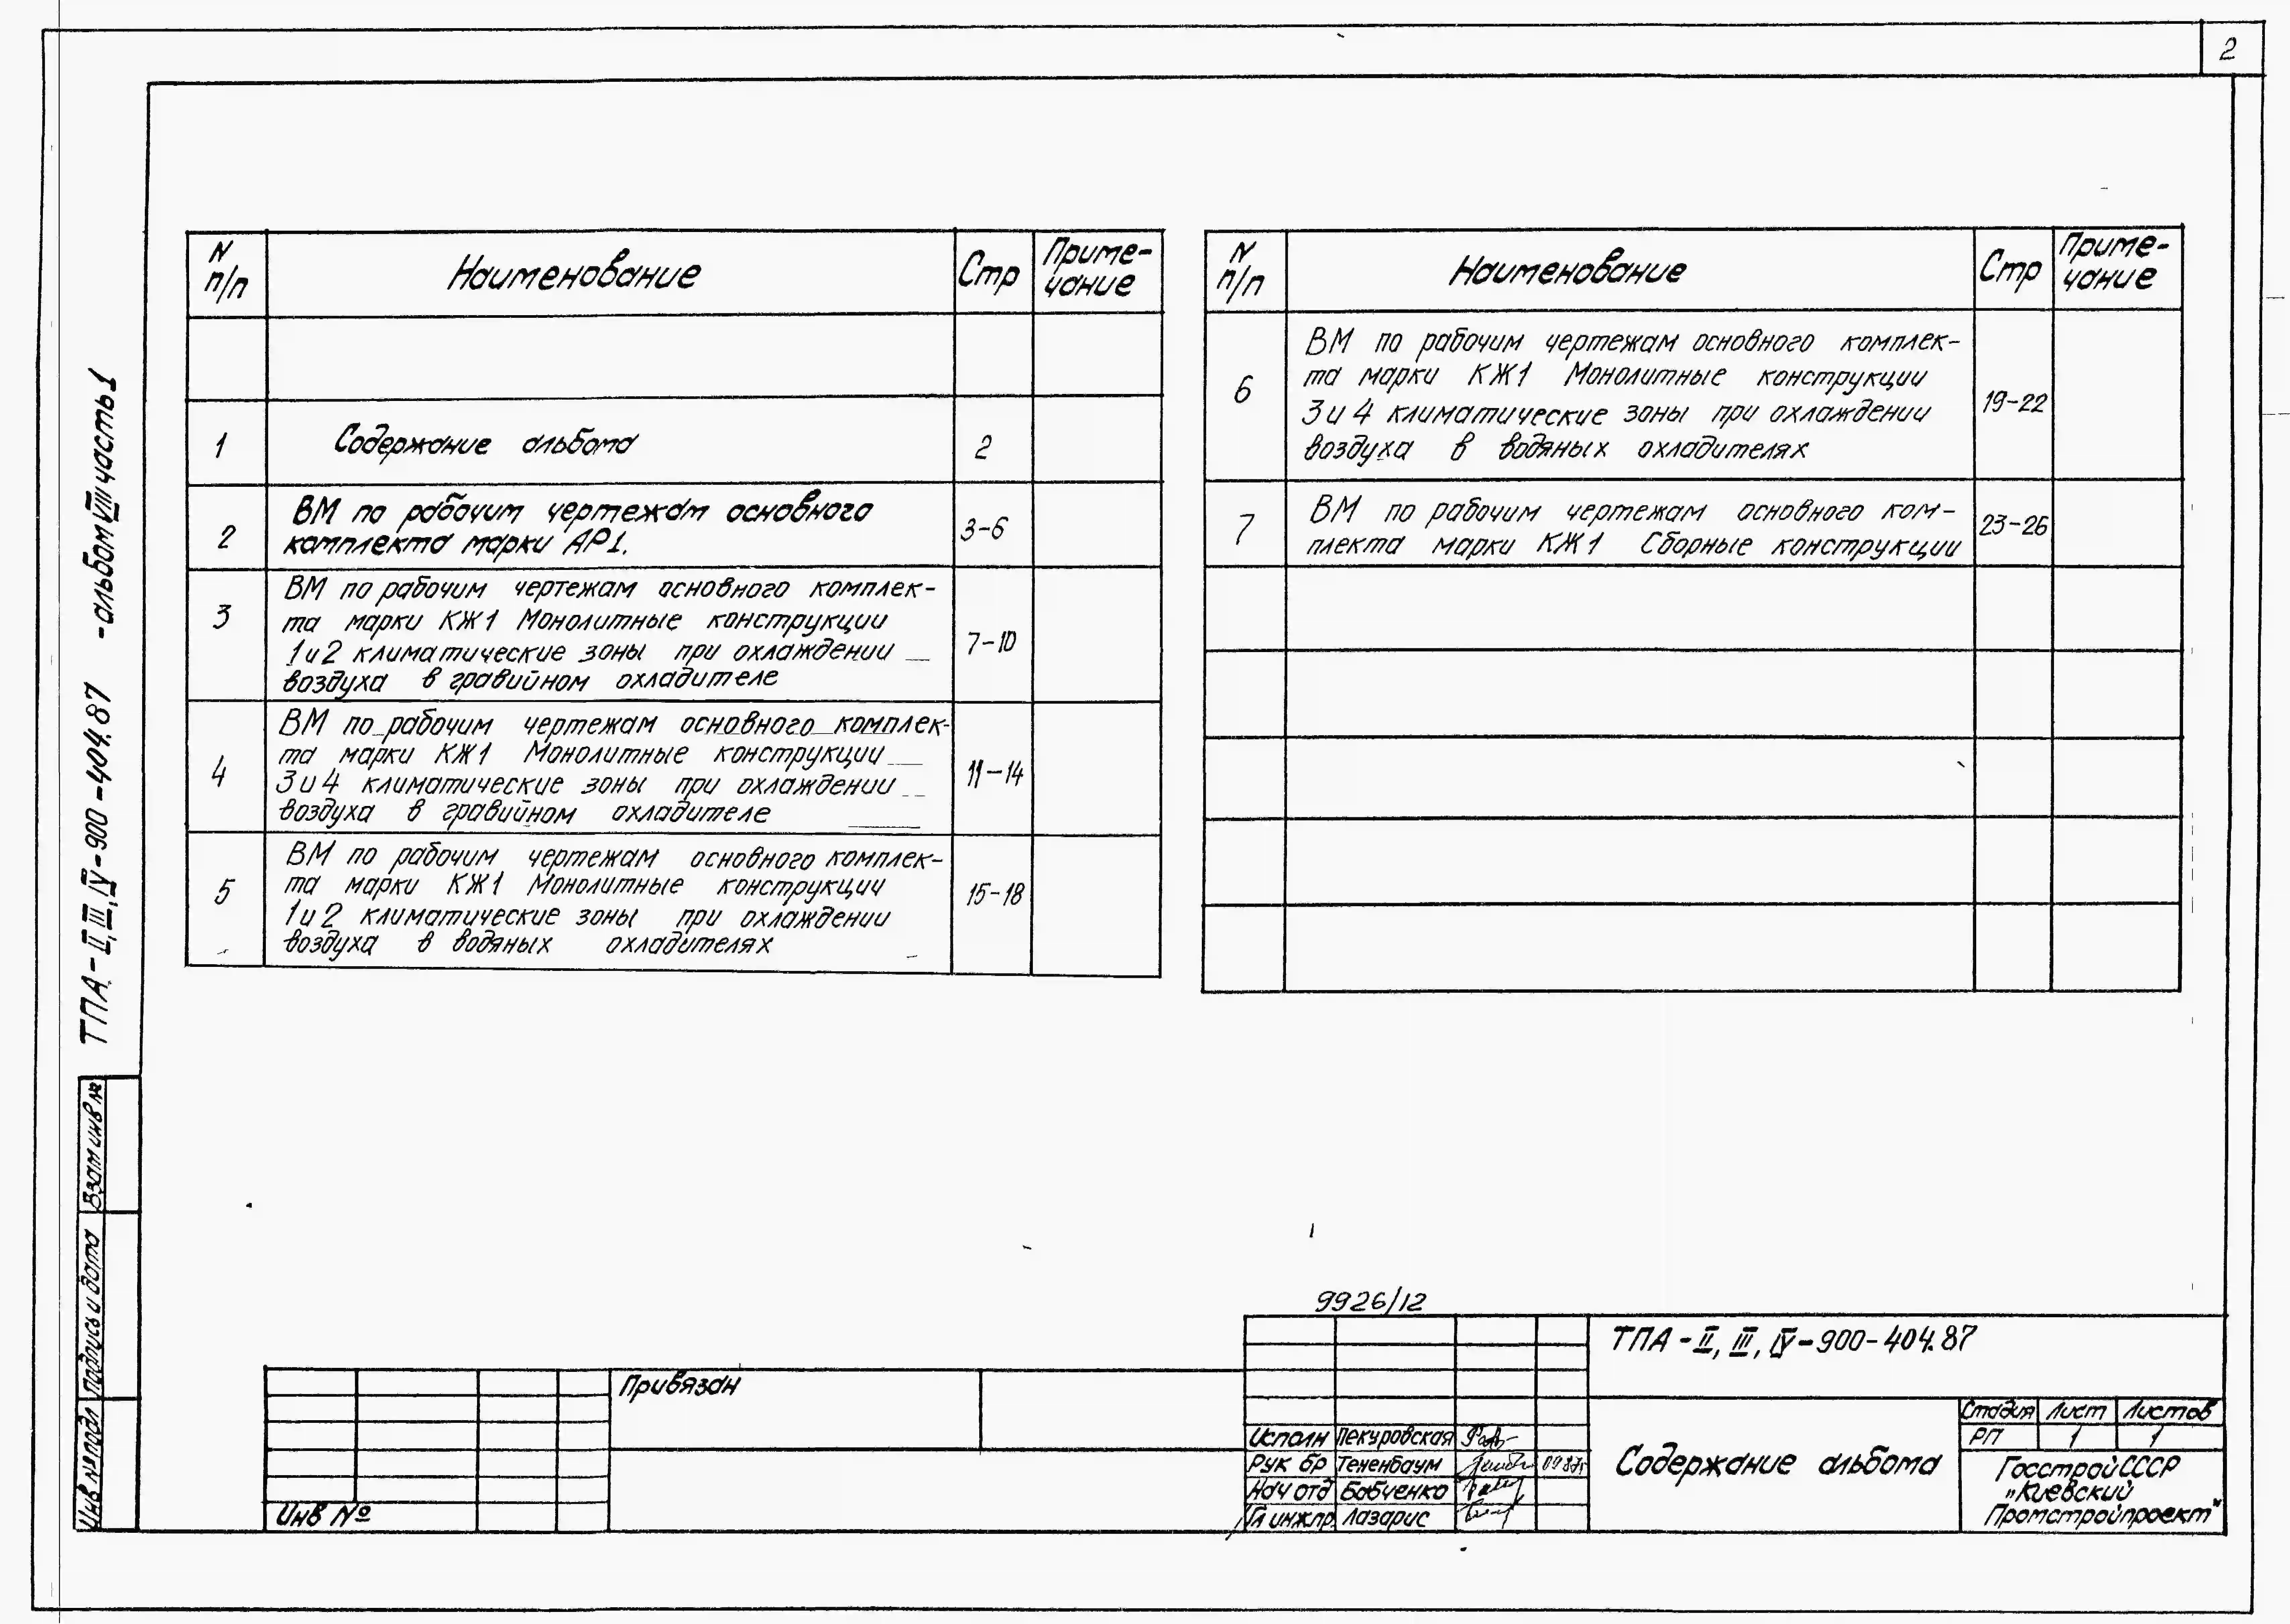 2
ТПА-II, III, IV-900-404.87 -альбом VIII часть 1
N п/п
Наименование
Стр
Приме-
чание
1
Содержание альбома
2
2
ВМ по рабочим чертежам основного
комплекта марки АР1.
3-6
3
ВМ по рабочим чертежам основного комплек-
та марки КЖ1 Монолитные конструкции
1 и 2 климатические зоны при охлаждении
воздуха в гравийном охладителе
7-10
4
ВМ по рабочим чертежам основного комплек-
та марки КЖ1 Монолитные конструкции
3 и 4 климатические зоны при охлаждении
воздуха в гравийном охладителе
11-14
5
ВМ по рабочим чертежам основного комплек-
та марки КЖ1 Монолитные конструкции
1 и 2 климатические зоны при охлаждении
воздуха в водяных охладителях
15-18
N п/п
Наименование
Стр
Приме-
чание
6
ВМ по рабочим чертежам основного комплек-
та марки КЖ1 Монолитные конструкции
3 и 4 климатические зоны при охлаждении
воздуха в водяных охладителях
19-22
7
ВМ по рабочим чертежам основного ком-
плекта марки КЖ1 Сборные конструкции
23-26
Взам инв №
Подпись и дата
Инв № подл
9926/12
ТПА-II, III, IV-900-404.87
Привязан
Инв №
Исполн Пекуровская
Рук бр Тененбаум
Нач отд Бобченко
Гл инж пр Лазарис
Содержание альбома
Стадия Лист Листов
РП 1 1
Госстрой СССР
„Киевский
Промстройпроект"